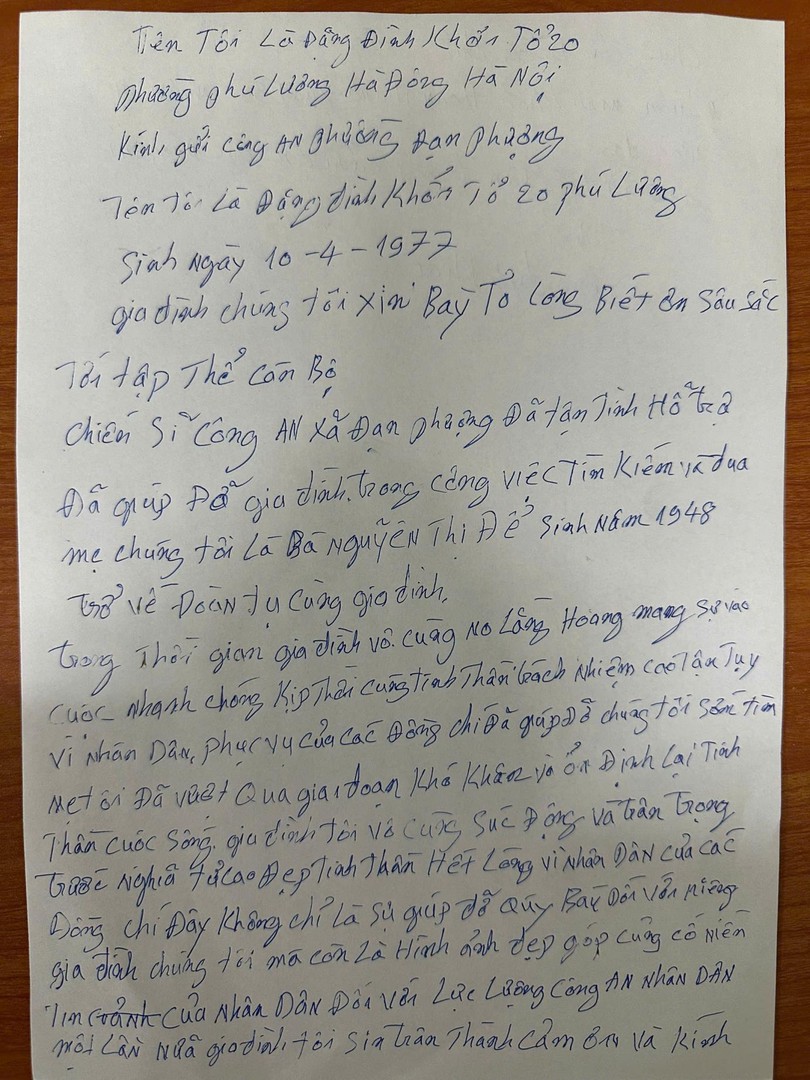 Tên Tôi Là Đặng Đình Khơi Tổ 20
phường phú Lương Hà Đông Hà Nội
Kính gửi công AN phường Đan phượng
Tên tôi Là Đặng đình Khơi Tổ 20 phú Lương
Sinh Ngày 10 - 4 - 1977
gia đình chúng tôi xin Bày Tỏ Lòng Biết ơn sâu sắc
Tới tập Thể cán Bộ
chiến Sĩ công AN xã Đan phượng Đã tận tình Hỗ trợ
Đã giúp Đỡ gia đình trong công việc Tìm Kiếm và đưa
mẹ chúng tôi Là Bà NGUYỄN Thị Để Sinh Năm 1948
trở về Đoàn tụ cùng gia đình.
trong Thời gian gia đình vô cùng No Lắng Hoang mang sự vào
cuộc Nhanh chóng Kịp Thời cùng tinh Thần trách Nhiệm cao tận Tụy
vì Nhân Dân, phục vụ của các Đồng chí Đã giúp Đỡ chúng tôi sớm tìm
mẹ tôi Đã vượt Qua giai đoạn Khó Khăn và ổn Định Lại Tinh
Thần cuộc sống. gia đình tôi vô cùng Súc Động và trân trọng
trước Nghĩa tử cao Đẹp Tinh Thần Hết Lòng vì Nhân DÂN của các
Đồng chí Đây Không chỉ Là Sự giúp đỡ Qúy Báy Đối với riêng
gia đình chúng tôi mà còn Là Hình ảnh đẹp góp củng cố niền
Tin của Nhân DÂN Đối với Lực Lượng Công AN NHÂN DÂN
một Lần Nữa gia đình tôi Sin trân Thành cảm ơn và Kính